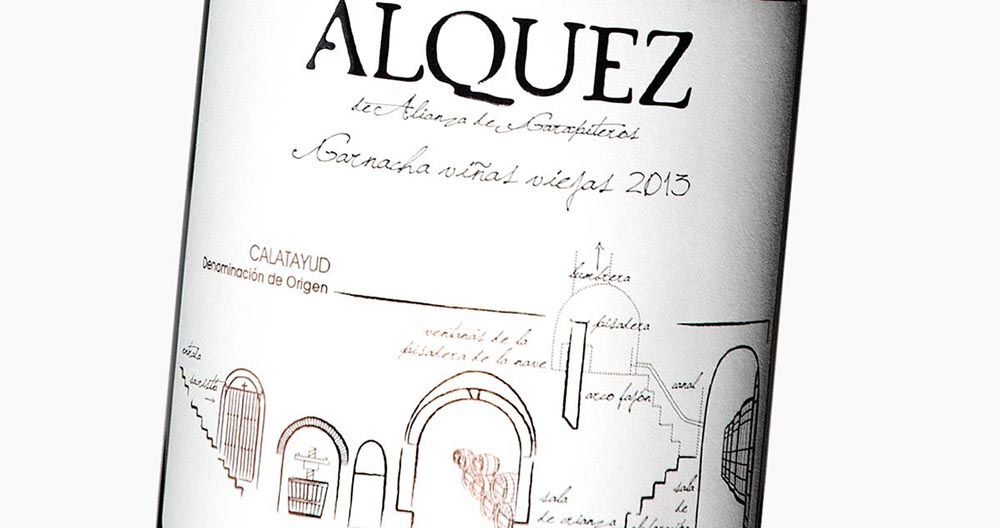 ALQUEZ
de Alianza de Garapiteros
Garnacha viñas viejas 2013
CALATAYUD
Denominación de Origen
lumbrera
pisadera
ventanas de la
pisadera de la nave
entrada
arco fajón
canal
sala
de crianza
sala
de